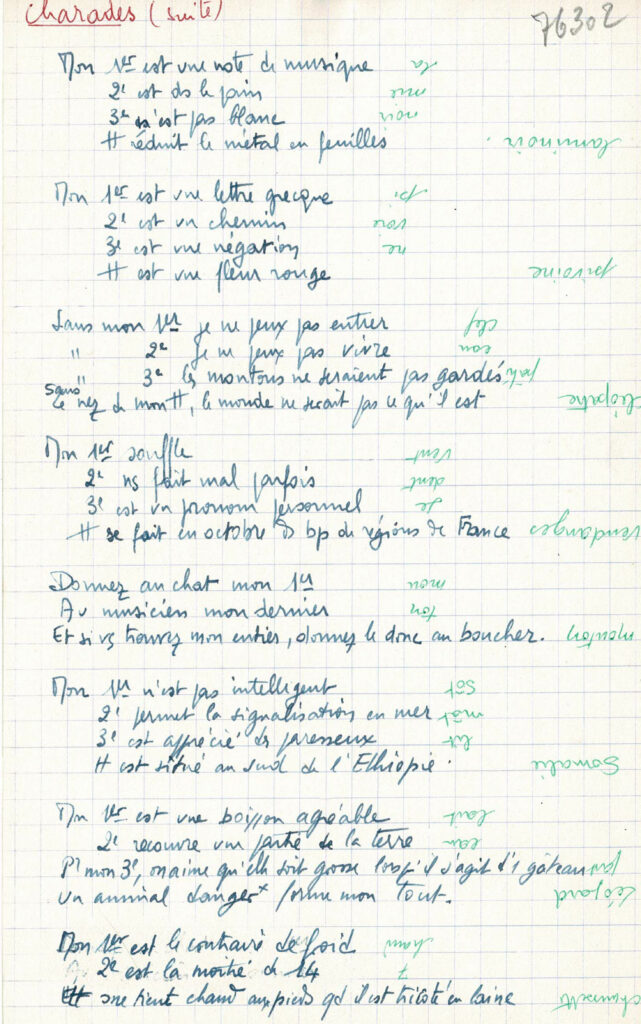 Charades (suite) 76302
Mon 1er est une note de musique la
2e est ds le pain mie
3e n'est pas blanc noir
# réduit le métal en feuilles laminoir.
Mon 1er est une lettre grecque pi
2e est un chemin voie
3e est une négation ne
# est une fleur rouge pivoine
Sans mon 1er je ne peux pas entrer clef
" 2e je ne peux pas vivre eau
" 3e les moutons ne seraient pas gardés
sans le nez de mon #, le monde ne serait pas ce qu'il est Cléopatre
Mon 1er souffle vent
2e ns fait mal parfois dent
3e est un pronom personnel je
# se fait en octobre ds bp de régions de France vendanges
Donnez au chat mon 1er mou
Au musicien mon dernier ton
Et si vs trouvez mon entier, donnez le donc au boucher. mouton
Mon 1er n'est pas intelligent sot
2e permet la signalisation en mer mât
3e est apprécié des paresseux lit
# est situé au sud de l'Ethiopie. Somalie
Mon 1er est une boisson agréable lait
2e recouvre une partie de la terre eau
Pr mon 3e, on aime qu'elle soit grosse lorsqu'il s'agit d'1 gâteau part
Un animal dangerx forme mon Tout. léopard
Mon 1er est le contraire de froid chaud
2e est la moitié de 14 7
# me tient chaud aux pieds qd il est tricoté en laine chaussette